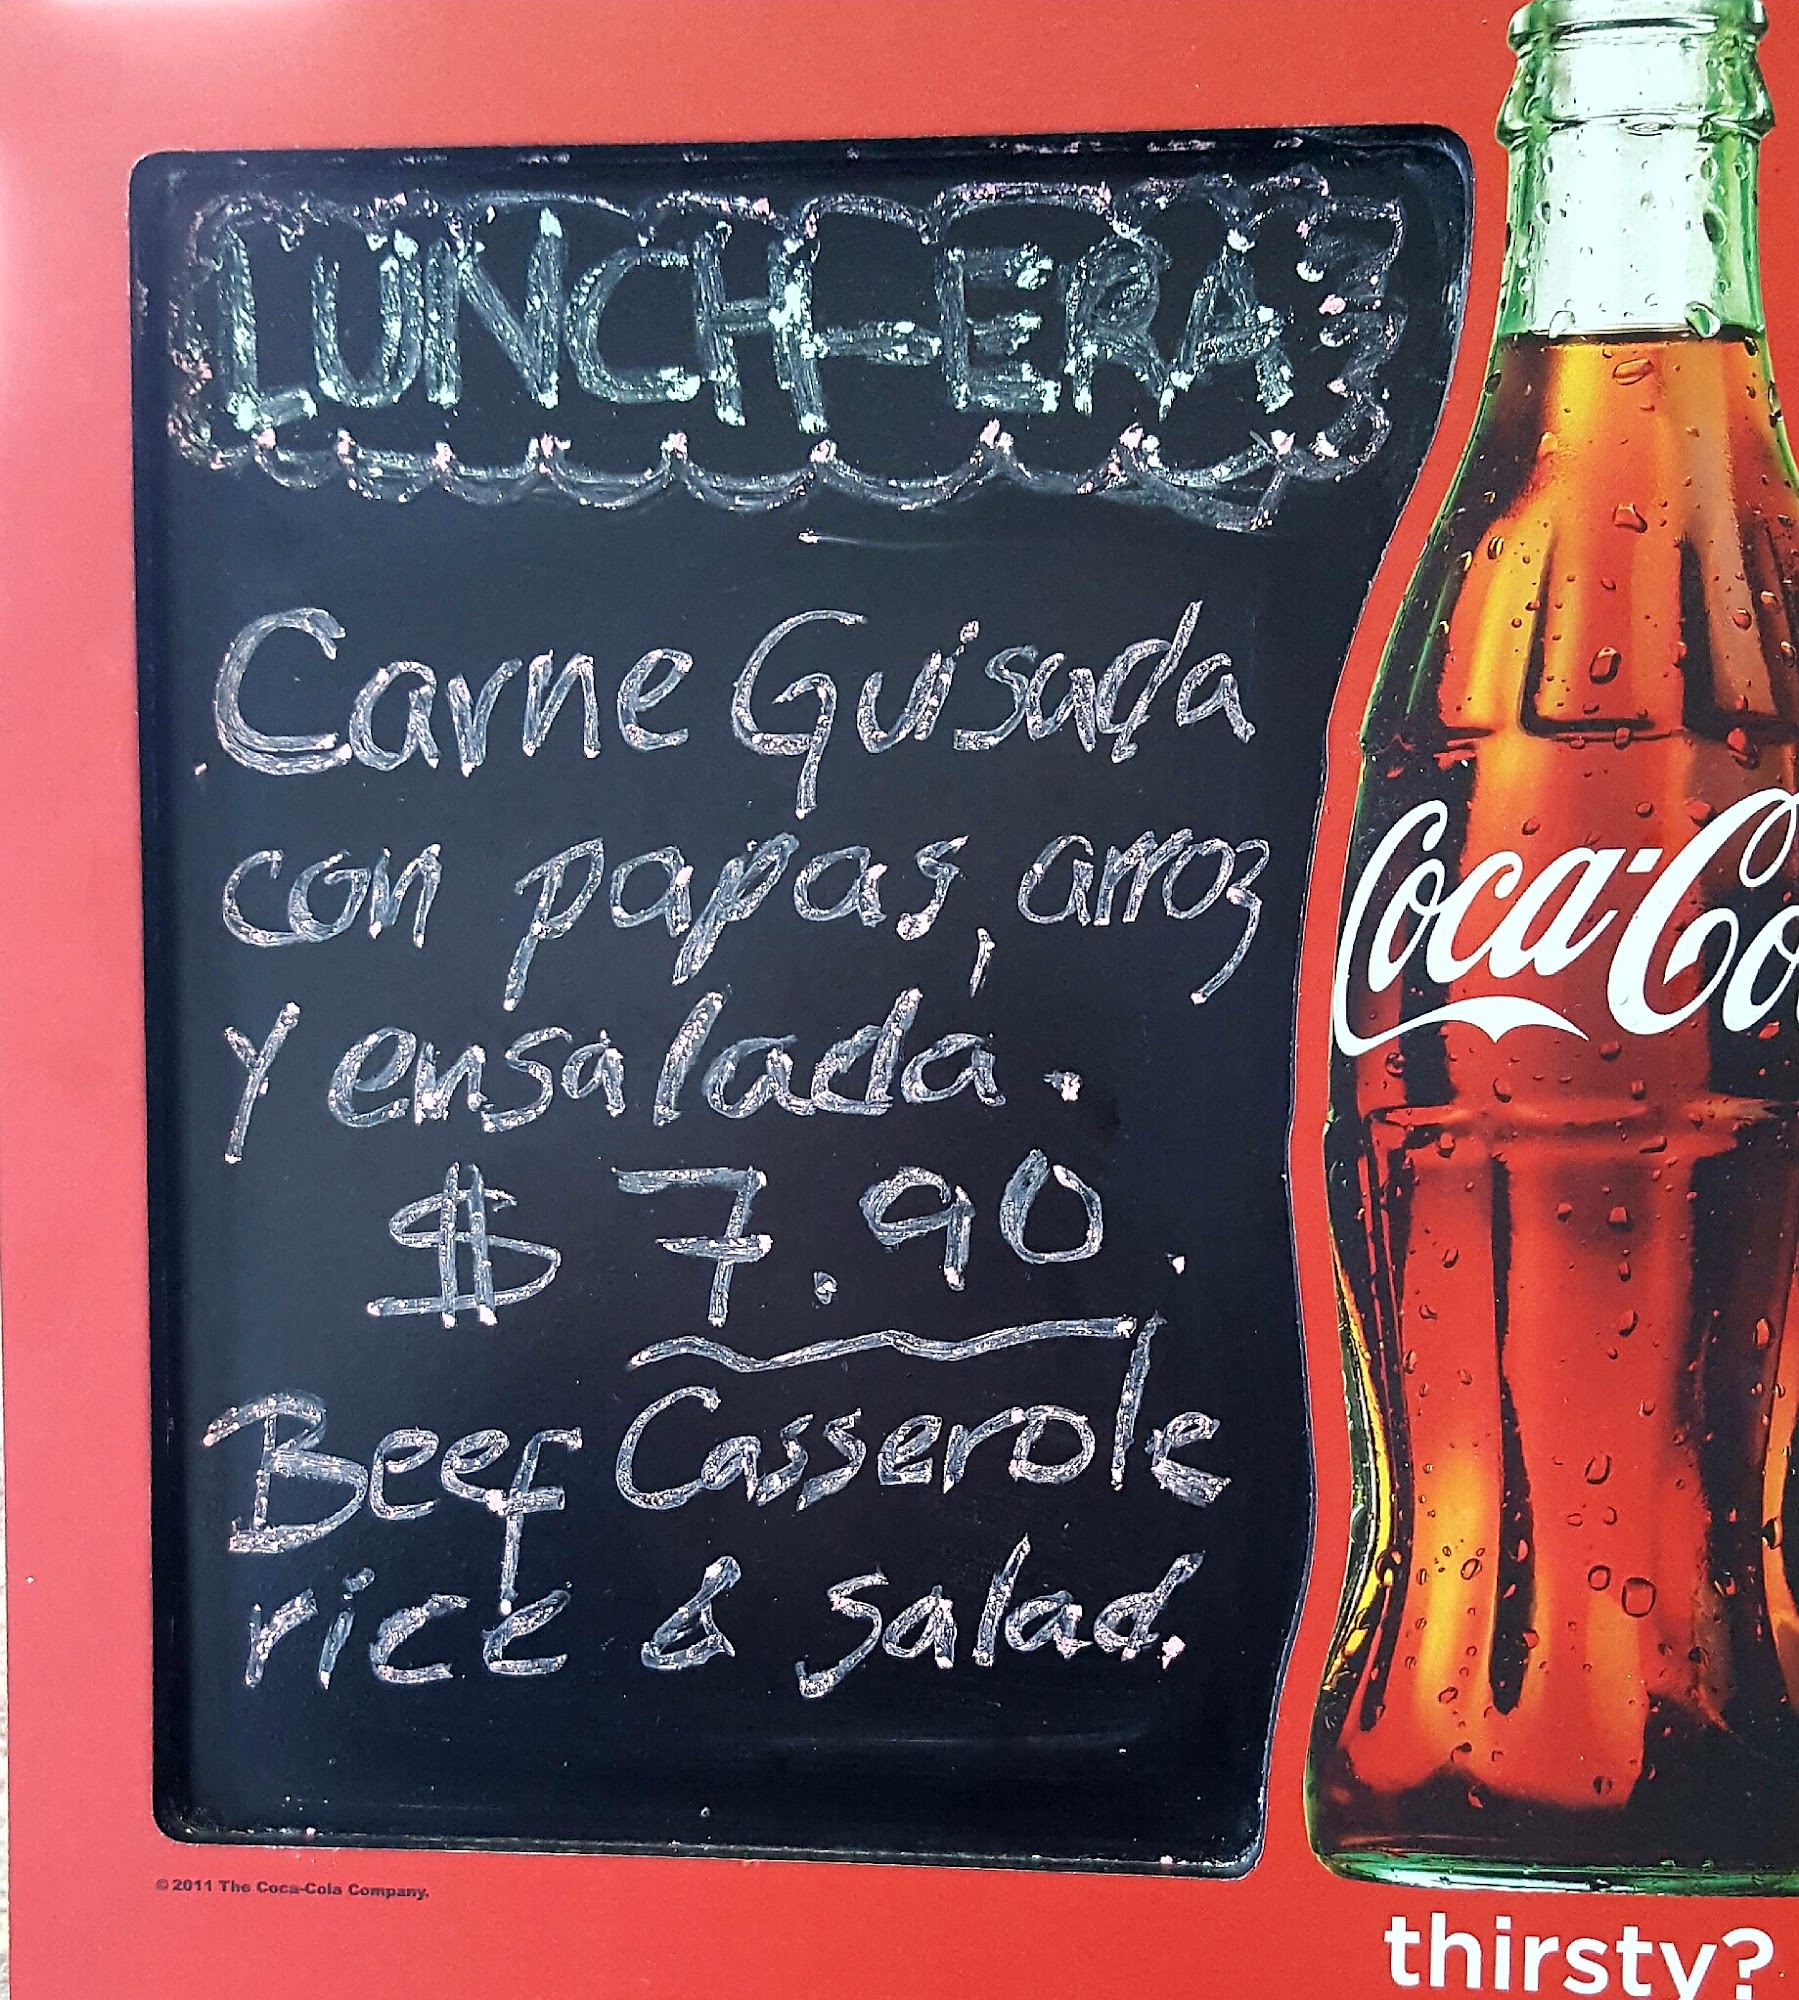 LUNCH-ERA
Carne Guisada
con papas, arroz
y ensalada.
$ 7.90.
Beef Casserole
rice & salad.
Coca-Co
© 2011 The Coca-Cola Company.
thirsty?